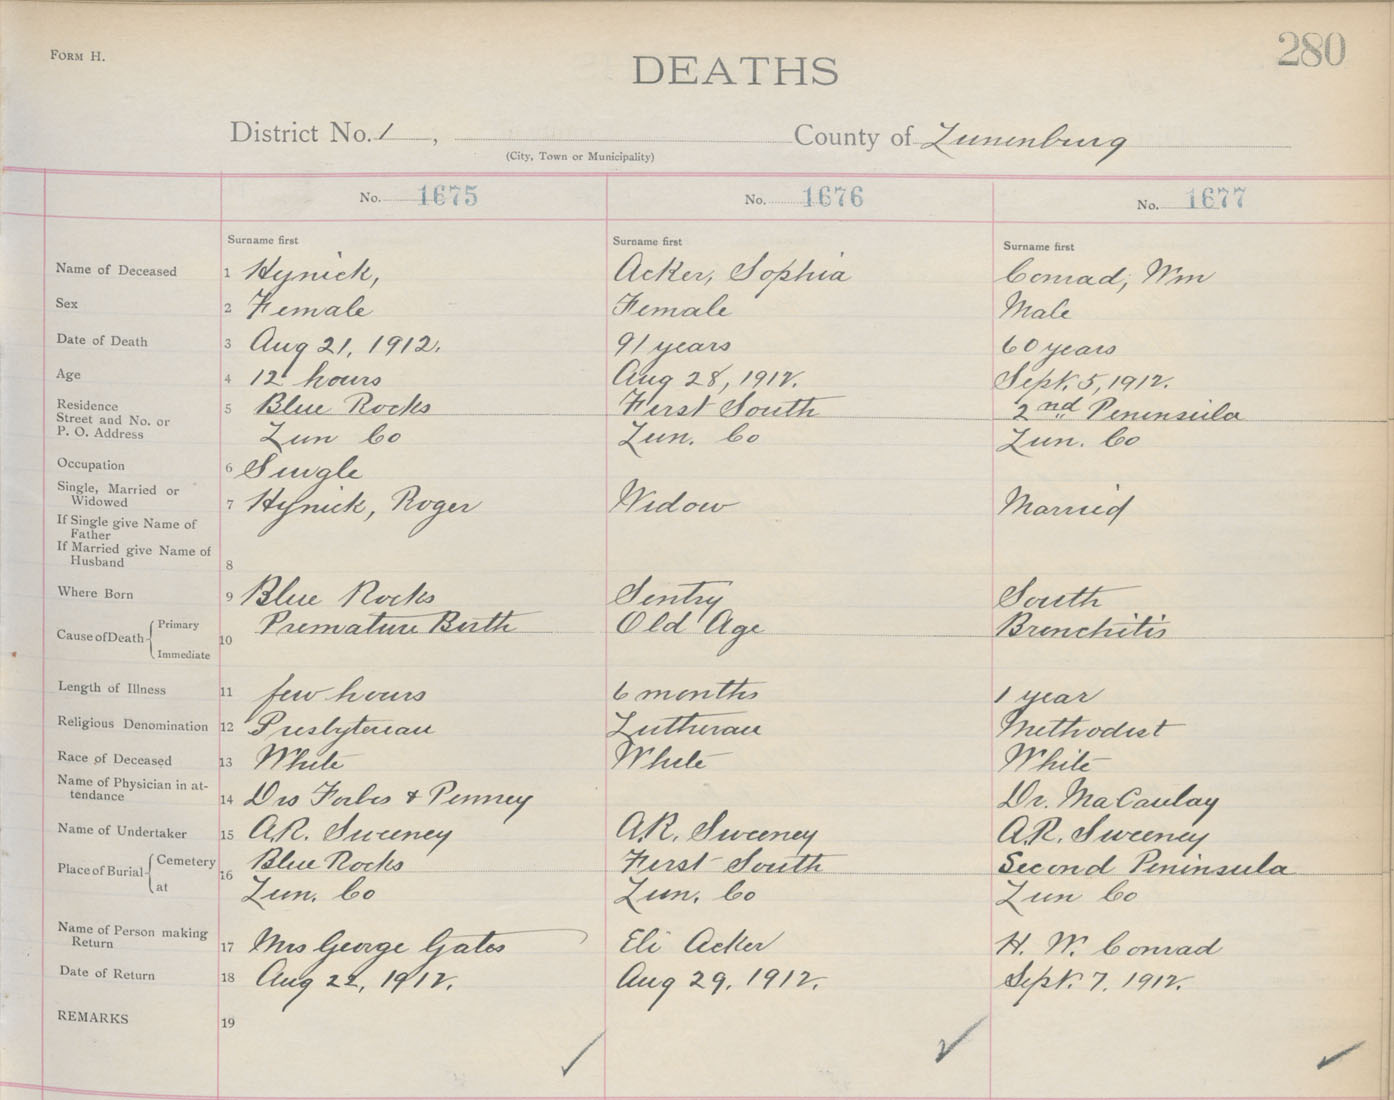 FORM H.
280
DEATHS
District No. 1 , County of Lunenburg
(City, Town or Municipality)
No. 1675 No. 1676 No. 1677
Surname first Surname first Surname first
Name of Deceased 1 Hynick, Acker, Sophia Conrad, Wm
Sex 2 Female Female Male
Date of Death 3 Aug 21, 1912. 91 years 60 years
Age 4 12 hours Aug 28, 1912. Sept. 5, 1912.
Residence
Street and No. or 5 Blue Rocks First South 2nd Peninsula
P. O. Address Lun Co Lun. Co Lun. Co
Occupation 6 Single
Single, Married or
Widowed 7 Hynick, Roger Widow Married
If Single give Name of
Father
If Married give Name of
Husband 8
Where Born 9 Blue Rocks Sentry South
Cause of Death Primary 10 Premature Birth Old Age Bronchitis
Immediate
Length of Illness 11 few hours 6 months 1 year
Religious Denomination 12 Presbyterian Lutheran Methodist
Race of Deceased 13 White White White
Name of Physician in at-
tendance 14 Drs Forbes & Penney Dr. MaCaulay
Name of Undertaker 15 A.R. Sweeney A.R. Sweeney A.R. Sweeney
Place of Burial Cemetery 16 Blue Rocks First South Second Peninsula
at Lun. Co Lun. Co Lun Co
Name of Person making
Return 17 Mrs George Gates Eli Acker H. W. Conrad
Date of Return 18 Aug 22, 1912. Aug 29. 1912. Sept. 7. 1912.
REMARKS 19